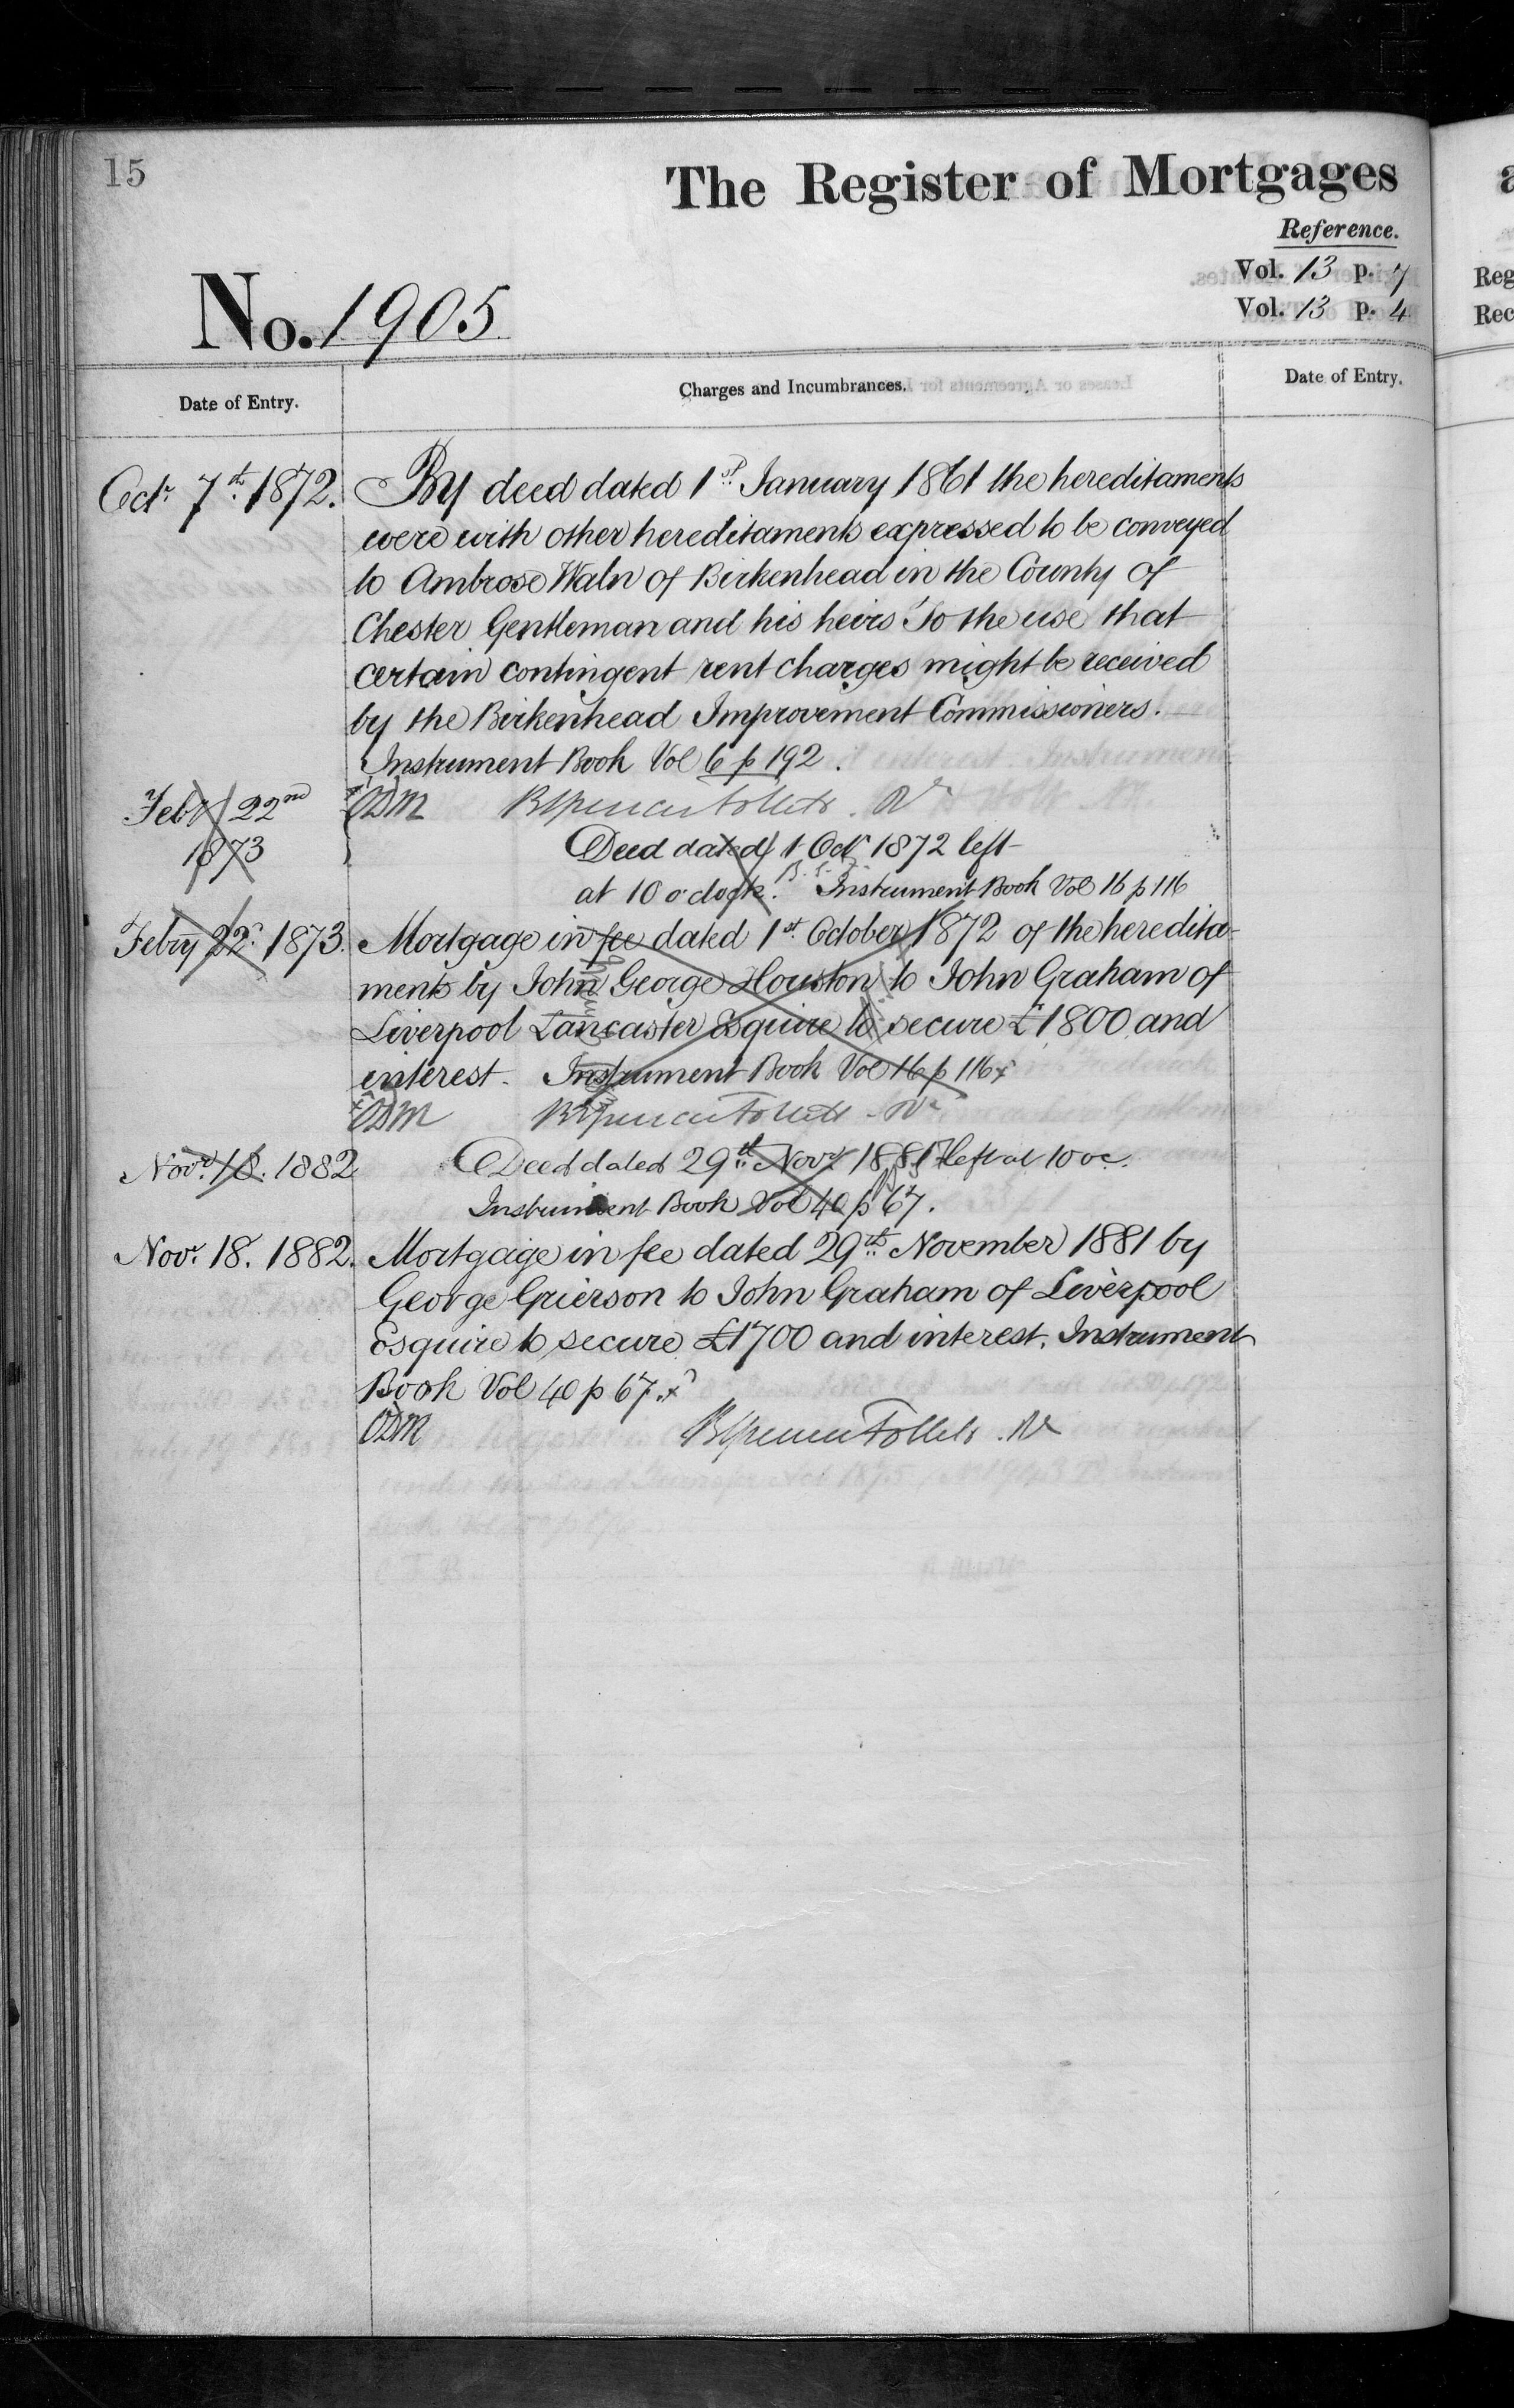 15
The Register of Mortgages
Reference.
Vol. 13 p. 7
Vol. 13 p. 4
No. 1905
Date of Entry.
Charges and Incumbrances.
Date of Entry.
Octr 7th 1872. By deed dated 1st January 1861 the hereditaments
were with other hereditaments expressed to be conveyed
to Ambrose Waln of Birkenhead in the County of
Chester Gentleman and his heirs To the use that
certain contingent rent charges might be received
by the Birkenhead Improvement Commissioners.
Instrument Book Vol 6 p 192.
Feby 22nd
1873
ODM BSpencer Follett. Rr
Deed dated 1 Octr 1872 left
at 10 o'clock. Instrument Book Vol 16 p 116
Febry 22. 1873. Mortgage in fee dated 1st October 1872 of the heredita-
ments by John George Houston to John Graham of
Liverpool Lancaster Esquire to secure £1,800 and
interest. Instrument Book Vol 16 p 116 x
ODM BSpencer Follett Rr
Novr 18. 1882 Deed dated 29th Novr 1881 left at 10 oc.
Instrument Book Vol 40 p 67.
Nov. 18. 1882. Mortgage in fee dated 29th November 1881 by
George Grierson to John Graham of Liverpool
Esquire to secure £1700 and interest. Instrument
Book Vol 40 p 67. x
ODM BSpencer Follett. Rr
Reg
Rec